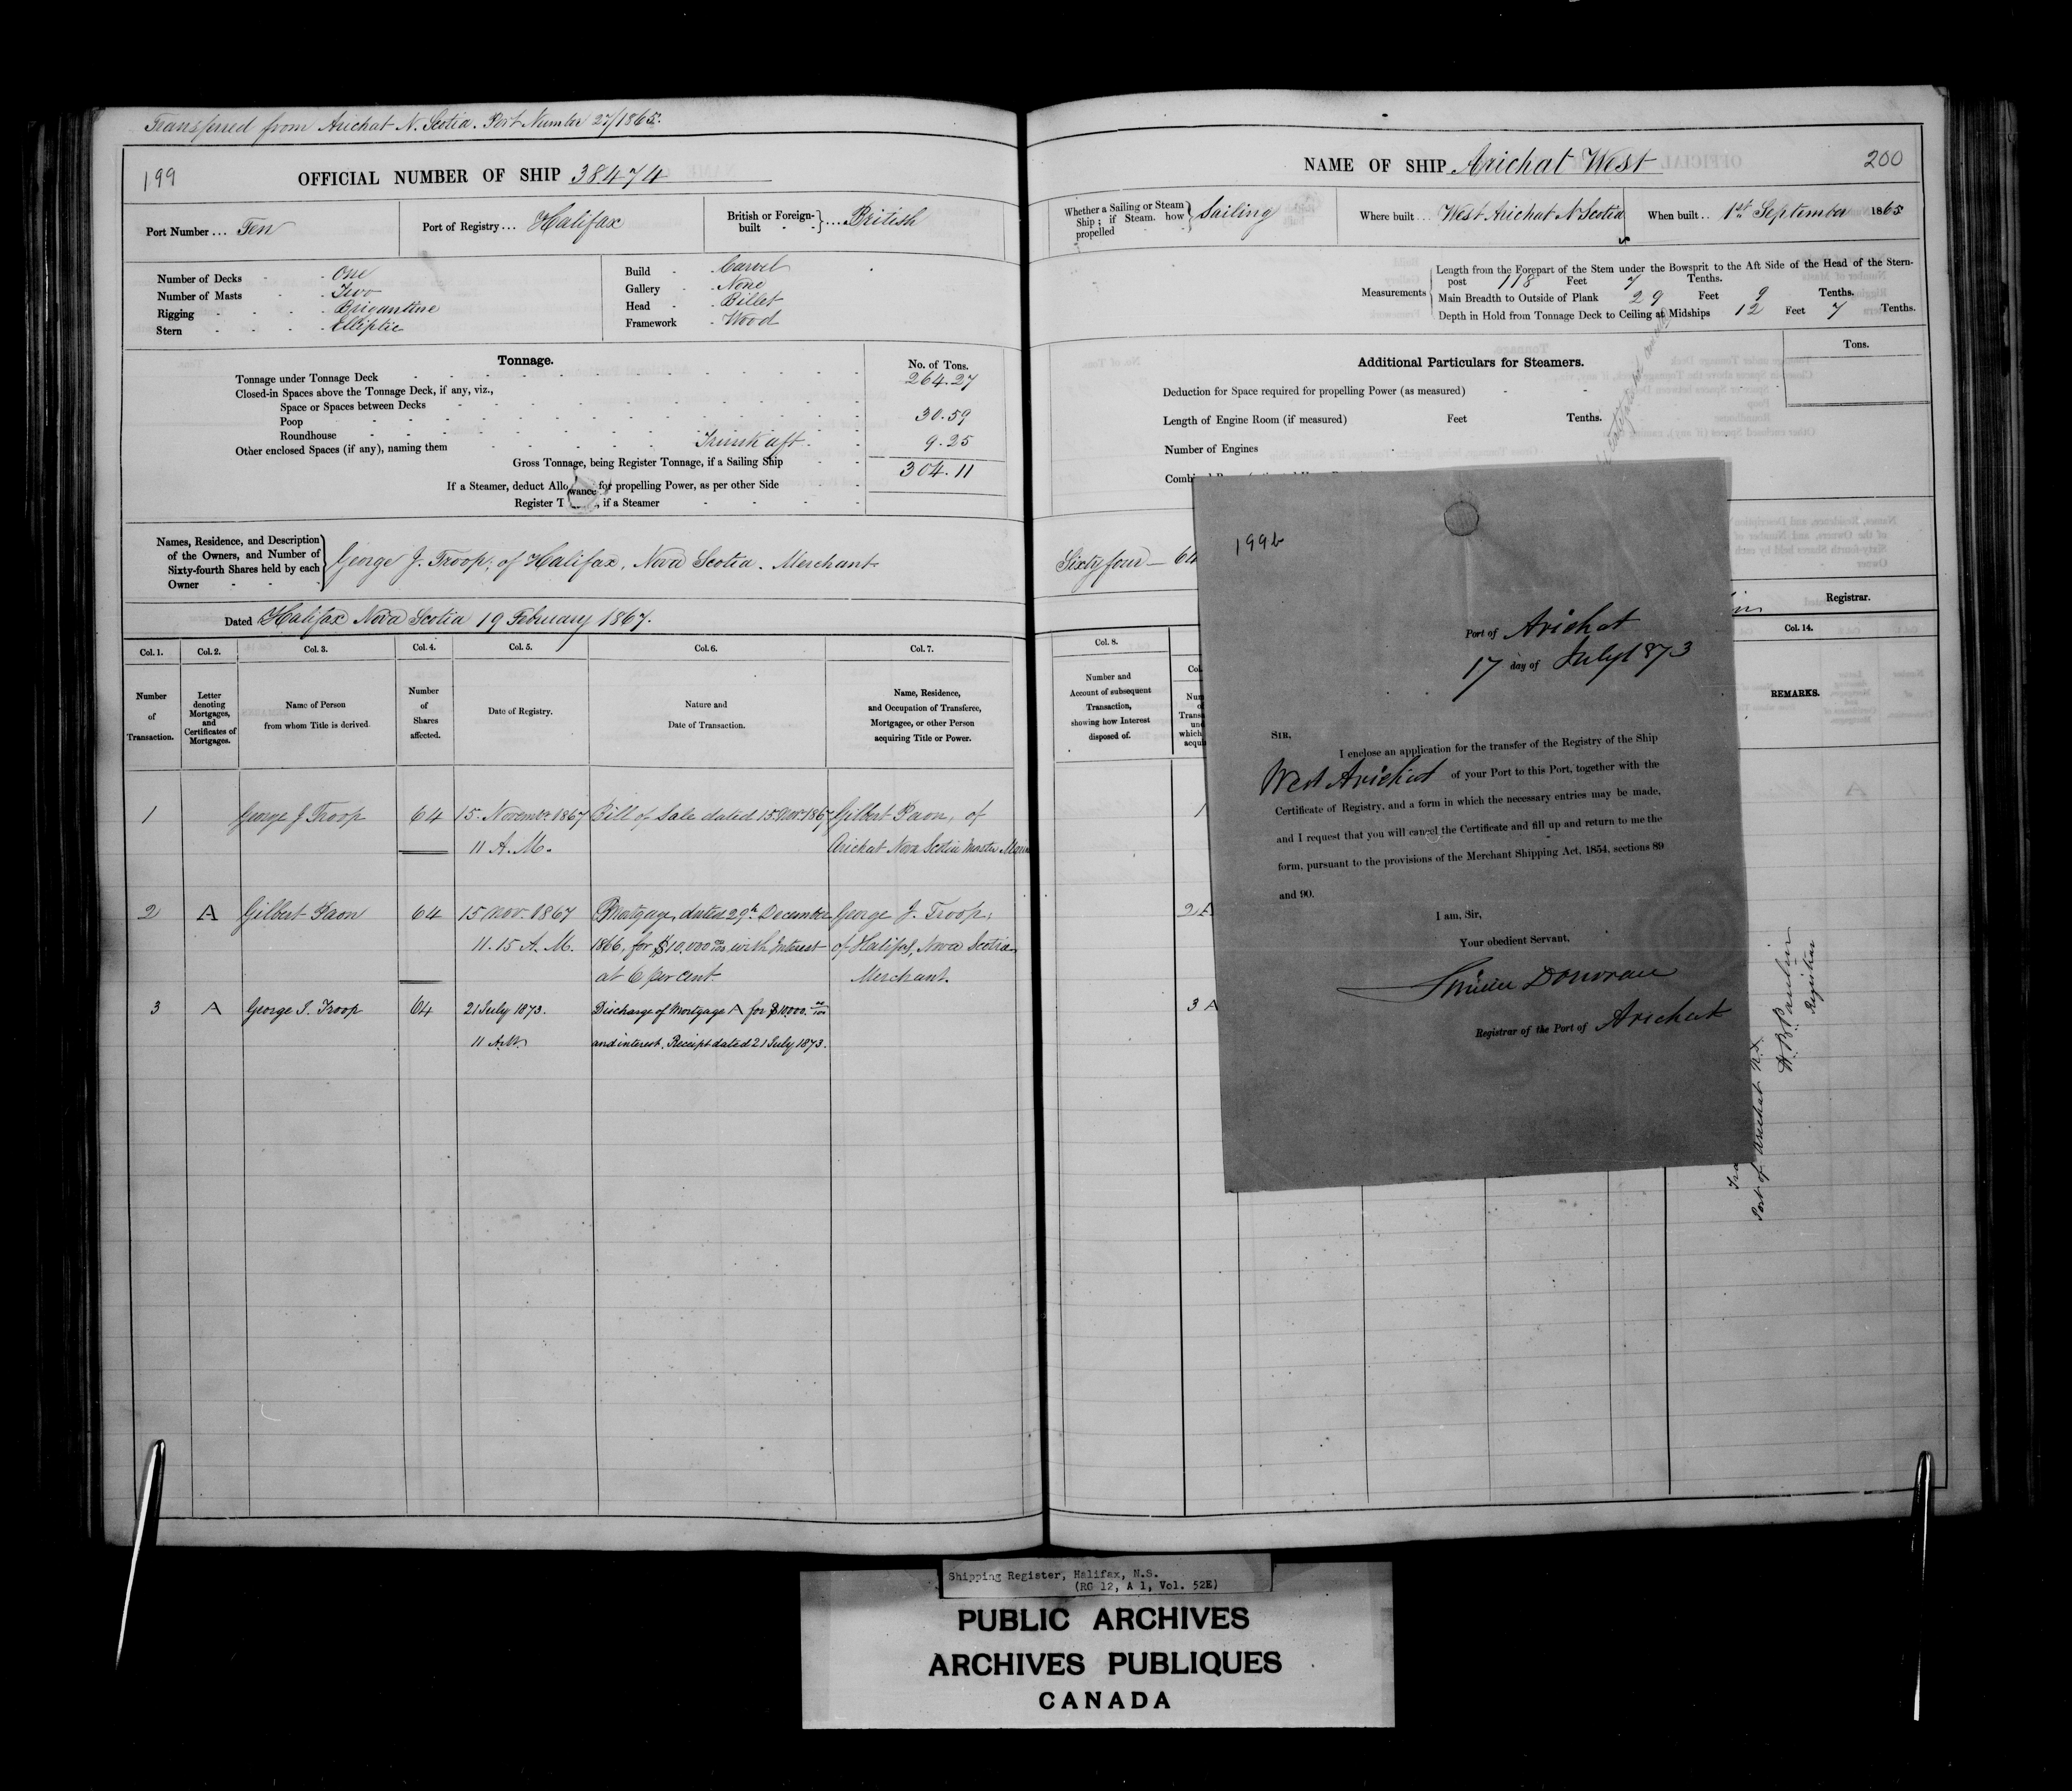 Transferred from Arichat N. Scotia. Port Number 27/1865.
199
OFFICIAL NUMBER OF SHIP 38474
Port Number ... Ten
Port of Registry ... Halifax
British or Foreign-built ... British
Number of Decks - One
Number of Masts - Two
Rigging - Brigantine
Stern - Elliptic
Build - Carvel
Gallery - None
Head - Billet
Framework - Wood
Tonnage.
No. of Tons.
Tonnage under Tonnage Deck 264.27
Closed-in Spaces above the Tonnage Deck, if any, viz.,
Space or Spaces between Decks
Poop 30.59
Roundhouse
Other enclosed Spaces (if any), naming them Trunk aft. 9.25
Gross Tonnage, being Register Tonnage, if a Sailing Ship 304.11
If a Steamer, deduct Allowance for propelling Power, as per other Side
Register T , if a Steamer
Names, Residence, and Description
of the Owners, and Number of
Sixty-fourth Shares held by each
Owner
George J. Troop, of Halifax, Nova Scotia. Merchant
Dated Halifax Nova Scotia 19 February 1867.
Col. 1. Col. 2. Col. 3. Col. 4. Col. 5. Col. 6. Col. 7.
Number of Transaction.
Letter denoting Mortgages, and Certificates of Mortgages.
Name of Person from whom Title is derived.
Number of Shares affected.
Date of Registry.
Nature and Date of Transaction.
Name, Residence, and Occupation of Transferee, Mortgagee, or other Person acquiring Title or Power.
1 George J Troop 64 15. November 1867 Bill of Sale dated 15 Nov. 1867 Gilbert Paon, of
11 A.M. Arichat Nova Scotia Master
2 A Gilbert Paon 64 15 Nov. 1867 Mortgage, dated 29th December George J. Troop,
11.15 A.M. 1866, for $10,000 with Interest of Halifax, Nova Scotia
at 6 per cent. Merchant.
3 A George J. Troop 64 21 July 1873. Discharge of Mortgage A for $10000.
11 A.M. and interest. Receipt dated 21 July 1873.
NAME OF SHIP Arichat West
200
Whether a Sailing or Steam Ship; if Steam, how propelled Sailing
Where built ... West Arichat N. Scotia
When built .. 1st September 1865
Measurements
Length from the Forepart of the Stem under the Bowsprit to the Aft Side of the Head of the Stern-
post 118 Feet 7 Tenths.
Main Breadth to Outside of Plank 29 Feet 9 Tenths.
Depth in Hold from Tonnage Deck to Ceiling at Midships 12 Feet 7 Tenths.
Additional Particulars for Steamers.
Tons.
Deduction for Space required for propelling Power (as measured)
Length of Engine Room (if measured) Feet Tenths.
Number of Engines
Combi
Sixty four - 64
Registrar.
Col. 8.
Col. 14.
Number and
Account of subsequent
Transaction,
showing how Interest
disposed of.
REMARKS.
1
2 A
3 A
199b
Port of Arichat
17 day of July 1873
SIR,
I enclose an application for the transfer of the Registry of the Ship
West Arichat of your Port to this Port, together with the
Certificate of Registry, and a form in which the necessary entries may be made,
and I request that you will cancel the Certificate and fill up and return to me the
form, pursuant to the provisions of the Merchant Shipping Act, 1854, sections 89
and 90.
I am, Sir,
Your obedient Servant,
Donovan
Registrar of the Port of Arichat
Port of Arichat N.S.
Registrar
Shipping Register, Halifax, N.S.
(RG 12, A 1, Vol. 52E)
PUBLIC ARCHIVES
ARCHIVES PUBLIQUES
CANADA